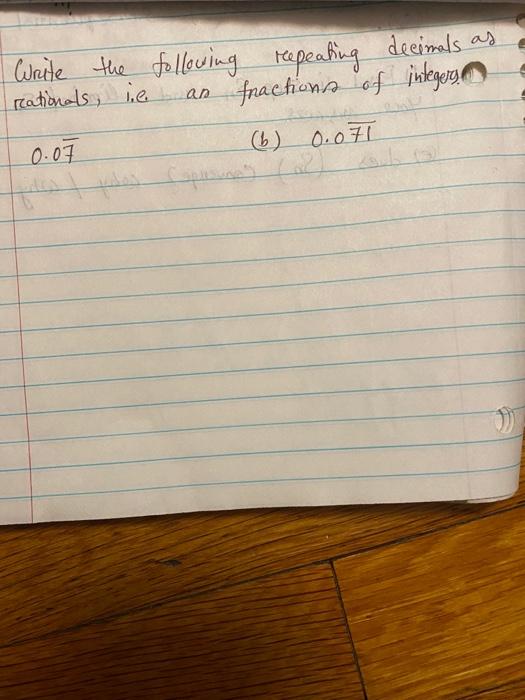 Write the following repeating decimals as
rationals, i.e. as fractions of integers.
0.07̅ (b) 0.07̅1̅
(Sn) converge? why / why